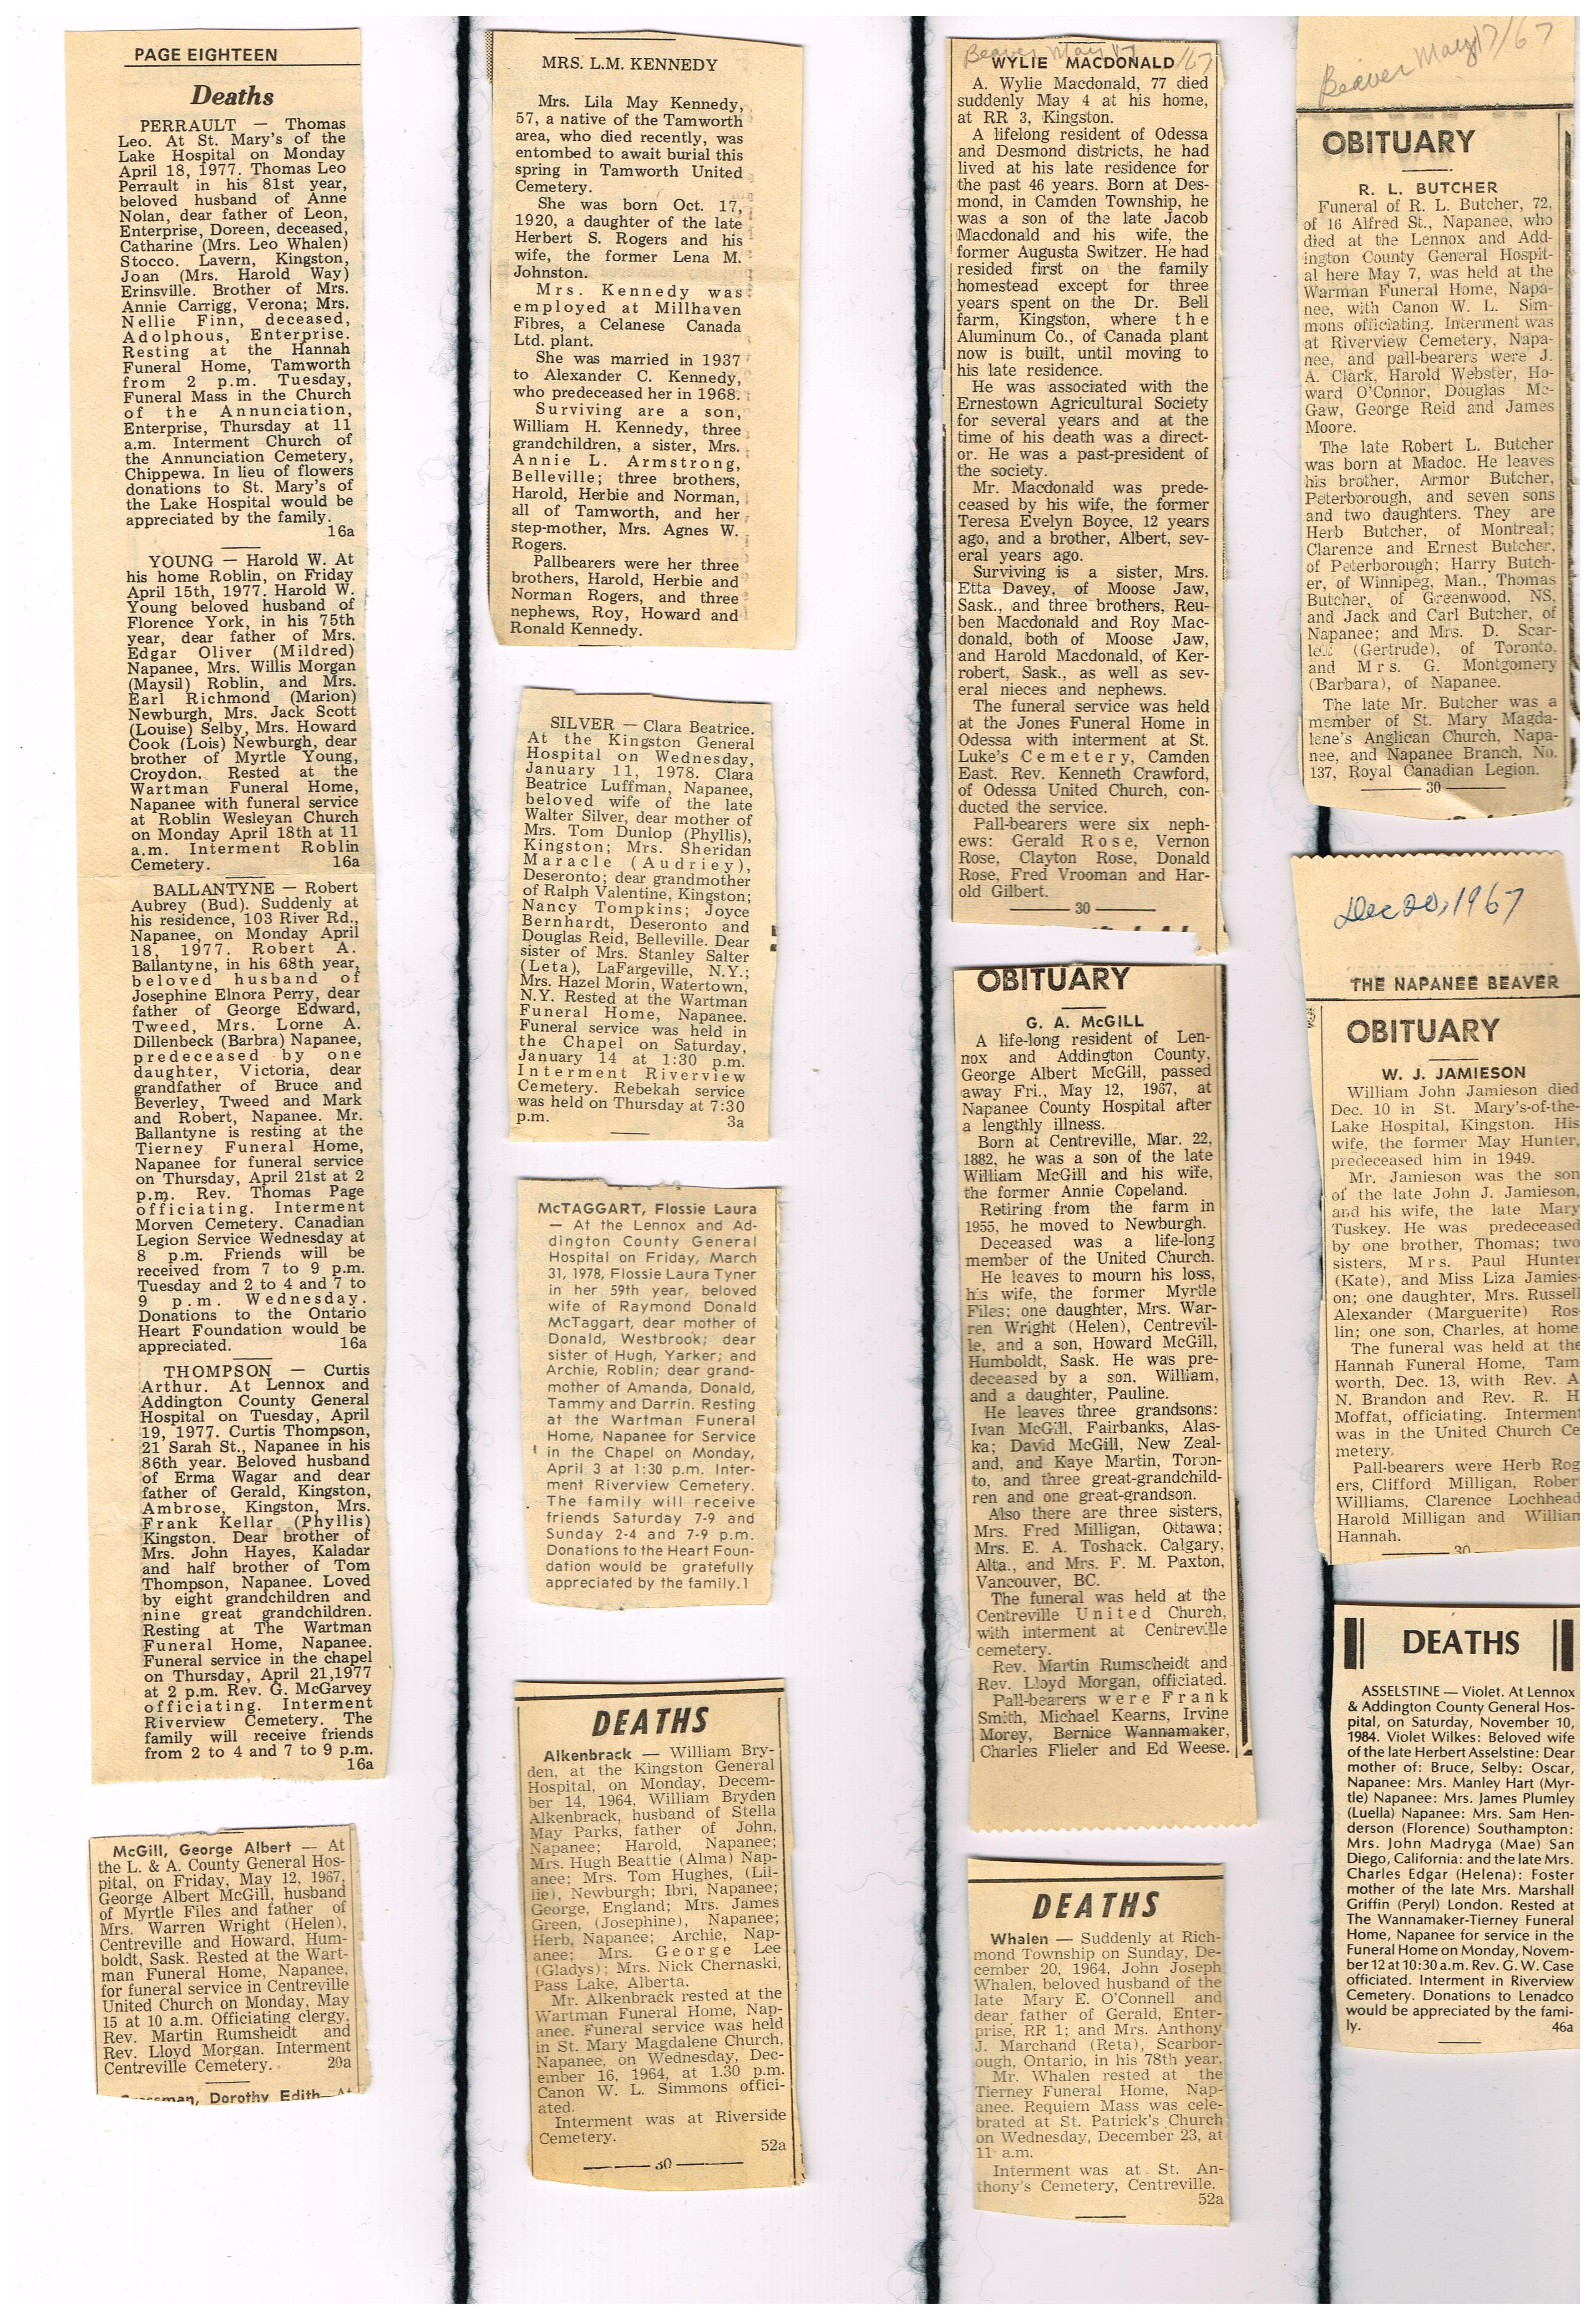 PAGE EIGHTEEN
Deaths
PERRAULT — Thomas
Leo. At St. Mary's of the
Lake Hospital on Monday
April 18, 1977. Thomas Leo
Perrault in his 81st year,
beloved husband of Anne
Nolan, dear father of Leon,
Enterprise, Doreen, deceased,
Catharine (Mrs. Leo Whalen)
Stocco. Lavern, Kingston,
Joan (Mrs. Harold Way)
Erinsville. Brother of Mrs.
Annie Carrigg, Verona; Mrs.
Nellie Finn, deceased,
Adolphous, Enterprise.
Resting at the Hannah
Funeral Home, Tamworth
from 2 p.m. Tuesday,
Funeral Mass in the Church
of the Annunciation,
Enterprise, Thursday at 11
a.m. Interment Church of
the Annunciation Cemetery,
Chippewa. In lieu of flowers
donations to St. Mary's of
the Lake Hospital would be
appreciated by the family.
16a
YOUNG — Harold W. At
his home Roblin, on Friday
April 15th, 1977. Harold W.
Young beloved husband of
Florence York, in his 75th
year, dear father of Mrs.
Edgar Oliver (Mildred)
Napanee, Mrs. Willis Morgan
(Maysil) Roblin, and Mrs.
Earl Richmond (Marion)
Newburgh, Mrs. Jack Scott
(Louise) Selby, Mrs. Howard
Cook (Lois) Newburgh, dear
brother of Myrtle Young,
Croydon. Rested at the
Wartman Funeral Home,
Napanee with funeral service
at Roblin Wesleyan Church
on Monday April 18th at 11
a.m. Interment Roblin
Cemetery. 16a
BALLANTYNE — Robert
Aubrey (Bud). Suddenly at
his residence, 103 River Rd.,
Napanee, on Monday April
18, 1977. Robert A.
Ballantyne, in his 68th year,
beloved husband of
Josephine Elnora Perry, dear
father of George Edward,
Tweed, Mrs. Lorne A.
Dillenbeck (Barbra) Napanee,
predeceased by one
daughter, Victoria, dear
grandfather of Bruce and
Beverley, Tweed and Mark
and Robert, Napanee. Mr.
Ballantyne is resting at the
Tierney Funeral Home,
Napanee for funeral service
on Thursday, April 21st at 2
p.m. Rev. Thomas Page
officiating. Interment
Morven Cemetery. Canadian
Legion Service Wednesday at
8 p.m. Friends will be
received from 7 to 9 p.m.
Tuesday and 2 to 4 and 7 to
9 p.m. Wednesday.
Donations to the Ontario
Heart Foundation would be
appreciated. 16a
THOMPSON — Curtis
Arthur. At Lennox and
Addington County General
Hospital on Tuesday, April
19, 1977. Curtis Thompson,
21 Sarah St., Napanee in his
86th year. Beloved husband
of Erma Wagar and dear
father of Gerald, Kingston,
Ambrose, Kingston, Mrs.
Frank Kellar (Phyllis)
Kingston. Dear brother of
Mrs. John Hayes, Kaladar
and half brother of Tom
Thompson, Napanee. Loved
by eight grandchildren and
nine great grandchildren.
Resting at The Wartman
Funeral Home, Napanee.
Funeral service in the chapel
on Thursday, April 21,1977
at 2 p.m. Rev. G. McGarvey
officiating. Interment
Riverview Cemetery. The
family will receive friends
from 2 to 4 and 7 to 9 p.m.
16a
McGill, George Albert — At
the L. & A. County General Hos-
pital, on Friday, May 12, 1967,
George Albert McGill, husband
of Myrtle Files and father of
Mrs. Warren Wright (Helen),
Centreville and Howard, Hum-
boldt, Sask. Rested at the Wart-
man Funeral Home, Napanee,
for funeral service in Centreville
United Church on Monday, May
15 at 10 a.m. Officiating clergy,
Rev. Martin Rumsheidt and
Rev. Lloyd Morgan. Interment
Centreville Cemetery. 20a
Dorothy Edith—At
MRS. L.M. KENNEDY
Mrs. Lila May Kennedy,
57, a native of the Tamworth
area, who died recently, was
entombed to await burial this
spring in Tamworth United
Cemetery.
She was born Oct. 17,
1920, a daughter of the late
Herbert S. Rogers and his
wife, the former Lena M.
Johnston.
Mrs. Kennedy was
employed at Millhaven
Fibres, a Celanese Canada
Ltd. plant.
She was married in 1937
to Alexander C. Kennedy,
who predeceased her in 1968.
Surviving are a son,
William H. Kennedy, three
grandchildren, a sister, Mrs.
Annie L. Armstrong,
Belleville; three brothers,
Harold, Herbie and Norman,
all of Tamworth, and her
step-mother, Mrs. Agnes W.
Rogers.
Pallbearers were her three
brothers, Harold, Herbie and
Norman Rogers, and three
nephews, Roy, Howard and
Ronald Kennedy.
SILVER — Clara Beatrice.
At the Kingston General
Hospital on Wednesday,
January 11, 1978. Clara
Beatrice Luffman, Napanee,
beloved wife of the late
Walter Silver, dear mother of
Mrs. Tom Dunlop (Phyllis),
Kingston; Mrs. Sheridan
Maracle (Audriey),
Deseronto; dear grandmother
of Ralph Valentine, Kingston;
Nancy Tompkins; Joyce
Bernhardt, Deseronto and
Douglas Reid, Belleville. Dear
sister of Mrs. Stanley Salter
(Leta), LaFargeville, N.Y.;
Mrs. Hazel Morin, Watertown,
N.Y. Rested at the Wartman
Funeral Home, Napanee.
Funeral service was held in
the Chapel on Saturday,
January 14 at 1:30 p.m.
Interment Riverview
Cemetery. Rebekah service
was held on Thursday at 7:30
p.m. 3a
McTAGGART, Flossie Laura
— At the Lennox and Ad-
dington County General
Hospital on Friday, March
31, 1978, Flossie Laura Tyner
in her 59th year, beloved
wife of Raymond Donald
McTaggart, dear mother of
Donald, Westbrook; dear
sister of Hugh, Yarker; and
Archie, Roblin; dear grand-
mother of Amanda, Donald,
Tammy and Darrin. Resting
at the Wartman Funeral
Home, Napanee for Service
in the Chapel on Monday,
April 3 at 1:30 p.m. Inter-
ment Riverview Cemetery.
The family will receive
friends Saturday 7-9 and
Sunday 2-4 and 7-9 p.m.
Donations to the Heart Foun-
dation would be gratefully
appreciated by the family.1
DEATHS
Alkenbrack — William Bry-
den, at the Kingston General
Hospital, on Monday, Decem-
ber 14, 1964, William Bryden
Alkenbrack, husband of Stella
May Parks, father of John,
Napanee; Harold, Napanee;
Mrs. Hugh Beattie (Alma) Nap-
anee; Mrs. Tom Hughes, (Lil-
lie), Newburgh; Ibri, Napanee;
George, England; Mrs. James
Green, (Josephine), Napanee;
Herb, Napanee; Archie, Nap-
anee; Mrs. George Lee
(Gladys); Mrs. Nick Chernaski,
Pass Lake, Alberta.
Mr. Alkenbrack rested at the
Wartman Funeral Home, Nap-
anee. Funeral service was held
in St. Mary Magdalene Church,
Napanee, on Wednesday, Dec-
ember 16, 1964, at 1.30 p.m.
Canon W. L. Simmons offici-
ated.
Interment was at Riverside
Cemetery.
52a
30
Beaver May 17/67
WYLIE MACDONALD
A. Wylie Macdonald, 77 died
suddenly May 4 at his home,
at RR 3, Kingston.
A lifelong resident of Odessa
and Desmond districts, he had
lived at his late residence for
the past 46 years. Born at Des-
mond, in Camden Township, he
was a son of the late Jacob
Macdonald and his wife, the
former Augusta Switzer. He had
resided first on the family
homestead except for three
years spent on the Dr. Bell
farm, Kingston, where the
Aluminum Co., of Canada plant
now is built, until moving to
his late residence.
He was associated with the
Ernestown Agricultural Society
for several years and at the
time of his death was a direct-
or. He was a past-president of
the society.
Mr. Macdonald was prede-
ceased by his wife, the former
Teresa Evelyn Boyce, 12 years
ago, and a brother, Albert, sev-
eral years ago.
Surviving is a sister, Mrs.
Etta Davey, of Moose Jaw,
Sask., and three brothers, Reu-
ben Macdonald and Roy Mac-
donald, both of Moose Jaw,
and Harold Macdonald, of Ker-
robert, Sask., as well as sev-
eral nieces and nephews.
The funeral service was held
at the Jones Funeral Home in
Odessa with interment at St.
Luke's Cemetery, Camden
East. Rev. Kenneth Crawford,
of Odessa United Church, con-
ducted the service.
Pall-bearers were six neph-
ews: Gerald Rose, Vernon
Rose, Clayton Rose, Donald
Rose, Fred Vrooman and Har-
old Gilbert.
30
OBITUARY
G. A. McGILL
A life-long resident of Len-
nox and Addington County,
George Albert McGill, passed
away Fri., May 12, 1967, at
Napanee County Hospital after
a lengthly illness.
Born at Centreville, Mar. 22,
1882, he was a son of the late
William McGill and his wife,
the former Annie Copeland.
Retiring from the farm in
1955, he moved to Newburgh.
Deceased was a life-long
member of the United Church.
He leaves to mourn his loss,
his wife, the former Myrtle
Files; one daughter, Mrs. War-
ren Wright (Helen), Centrevil-
le, and a son, Howard McGill,
Humboldt, Sask. He was pre-
deceased by a son, William,
and a daughter, Pauline.
He leaves three grandsons:
Ivan McGill, Fairbanks, Alas-
ka; David McGill, New Zeal-
and, and Kaye Martin, Toron-
to, and three great-grandchild-
ren and one great-grandson.
Also there are three sisters,
Mrs. Fred Milligan, Ottawa;
Mrs. E. A. Toshack. Calgary,
Alta., and Mrs. F. M. Paxton,
Vancouver, BC.
The funeral was held at the
Centreville United Church,
with interment at Centreville
cemetery.
Rev. Martin Rumscheidt and
Rev. Lloyd Morgan, officiated.
Pall-bearers were Frank
Smith, Michael Kearns, Irvine
Morey, Bernice Wannamaker,
Charles Flieler and Ed Weese.
DEATHS
Whalen — Suddenly at Rich-
mond Township on Sunday, De-
cember 20, 1964, John Joseph
Whalen, beloved husband of the
late Mary E. O'Connell and
dear father of Gerald, Enter-
prise, RR 1; and Mrs. Anthony
J. Marchand (Reta), Scarbor-
ough, Ontario, in his 78th year.
Mr. Whalen rested at the
Tierney Funeral Home, Nap-
anee. Requiem Mass was cele-
brated at St. Patrick's Church
on Wednesday, December 23, at
11 a.m.
Interment was at St. An-
thony's Cemetery, Centreville.
52a
Beaver May 17/67
OBITUARY
R. L. BUTCHER
Funeral of R. L. Butcher, 72,
of 16 Alfred St., Napanee, who
died at the Lennox and Add-
ington County General Hospit-
al here May 7, was held at the
Warman Funeral Home, Napa-
nee, with Canon W. L. Sim-
mons officiating. Interment was
at Riverview Cemetery, Napa-
nee, and pall-bearers were J.
A. Clark, Harold Webster, Ho-
ward O'Connor, Douglas Mc-
Gaw, George Reid and James
Moore.
The late Robert L. Butcher
was born at Madoc. He leaves
his brother, Armor Butcher,
Peterborough, and seven sons
and two daughters. They are
Herb Butcher, of Montreal;
Clarence and Ernest Butcher,
of Peterborough; Harry Butch-
er, of Winnipeg, Man., Thomas
Butcher, of Greenwood, NS,
and Jack and Carl Butcher, of
Napanee; and Mrs. D. Scar-
(Gertrude), of Toronto,
and Mrs. G. Montgomery
(Barbara), of Napanee.
The late Mr. Butcher was a
member of St. Mary Magda-
lene's Anglican Church, Napa-
nee, and Napanee Branch, No.
137, Royal Canadian Legion.
30
Dec 20, 1967
THE NAPANEE BEAVER
OBITUARY
W. J. JAMIESON
William John Jamieson died
Dec. 10 in St. Mary's-of-the-
Lake Hospital, Kingston. His
wife, the former May Hunter,
predeceased him in 1949.
Mr. Jamieson was the son
of the late John J. Jamieson,
and his wife, the late Mary
Tuskey. He was predeceased
by one brother, Thomas; two
sisters, Mrs. Paul Hunter
(Kate), and Miss Liza Jamies-
on; one daughter, Mrs. Russell
Alexander (Marguerite) Ros-
lin; one son, Charles, at home.
The funeral was held at the
Hannah Funeral Home, Tam
worth, Dec. 13, with Rev. A
N. Brandon and Rev. R. H
Moffat, officiating. Interment
was in the United Church Ce
metery.
Pall-bearers were Herb Rog
ers, Clifford Milligan, Rober
Williams, Clarence Lochhead
Harold Milligan and William
Hannah.
30
DEATHS
ASSELSTINE — Violet. At Lennox
& Addington County General Hos-
pital, on Saturday, November 10,
1984. Violet Wilkes: Beloved wife
of the late Herbert Asselstine: Dear
mother of: Bruce, Selby: Oscar,
Napanee: Mrs. Manley Hart (Myr-
tle) Napanee: Mrs. James Plumley
(Luella) Napanee: Mrs. Sam Hen-
derson (Florence) Southampton:
Mrs. John Madryga (Mae) San
Diego, California: and the late Mrs.
Charles Edgar (Helena): Foster
mother of the late Mrs. Marshall
Griffin (Peryl) London. Rested at
The Wannamaker-Tierney Funeral
Home, Napanee for service in the
Funeral Home on Monday, Novem-
ber 12 at 10:30 a.m. Rev. G. W. Case
officiated. Interment in Riverview
Cemetery. Donations to Lenadco
would be appreciated by the fami-
ly. 46a